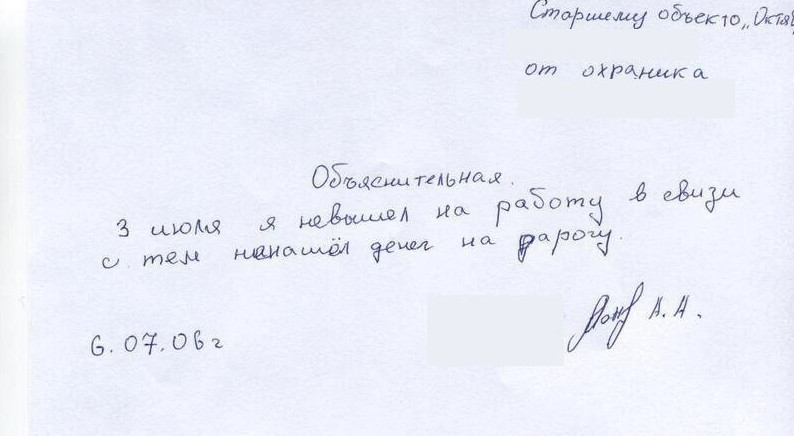 Старшему объекто „Октя
от охраника
Объяснительная.
3 июля я невышел на работу в свизи
с тем ненашёл денег на дарогу.
6.07.06 г
А.А.